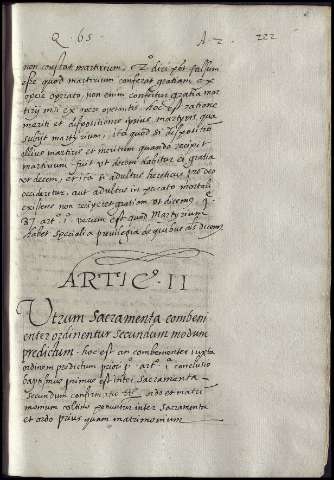 Q. 65 A 2. 222
non constat martirium. 2º dici pot falsum
esse quod martirium conferat gratiam ex
opere operato, non enim confertur gratia mar
tirij nisi ex opere operantis. hoc est ratione
meriti et dispositionis ipsius martyris qua
subijt martyrium, ita quod si dispositio
illius martiris et meritum quando recipit
martirium fuit ut decem habitur ei gratia
ut decem, et ita si adultus hereticus pro deo
occideretur, aut adultus in pecato mortali
existens non reciperet gratiam ut dicemus
37 art. 1. verum est quod Martyrium
habet specialia previlegia de quibus ibi dicemus
ARTIC. II
Utrum Sacramenta combeni
enter ordinentur secundum modum
predictum. hoc est an combenienter iuxta
ordinem predictum prior art. 1 conclusio
baptismus primus est inter Sacramenta
secundum confirmatio ordo et matri
monium ponuntur inter Sacramenta
et ordo prius quam matrimonium